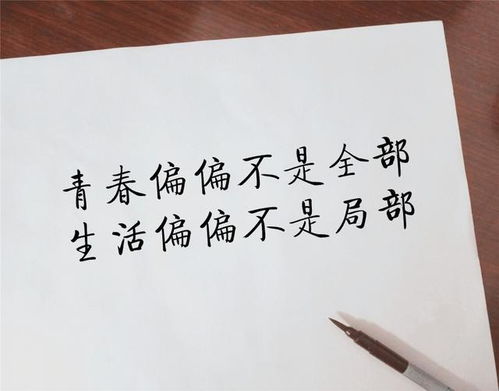 青春偏偏不是全部
生活偏偏不是局部